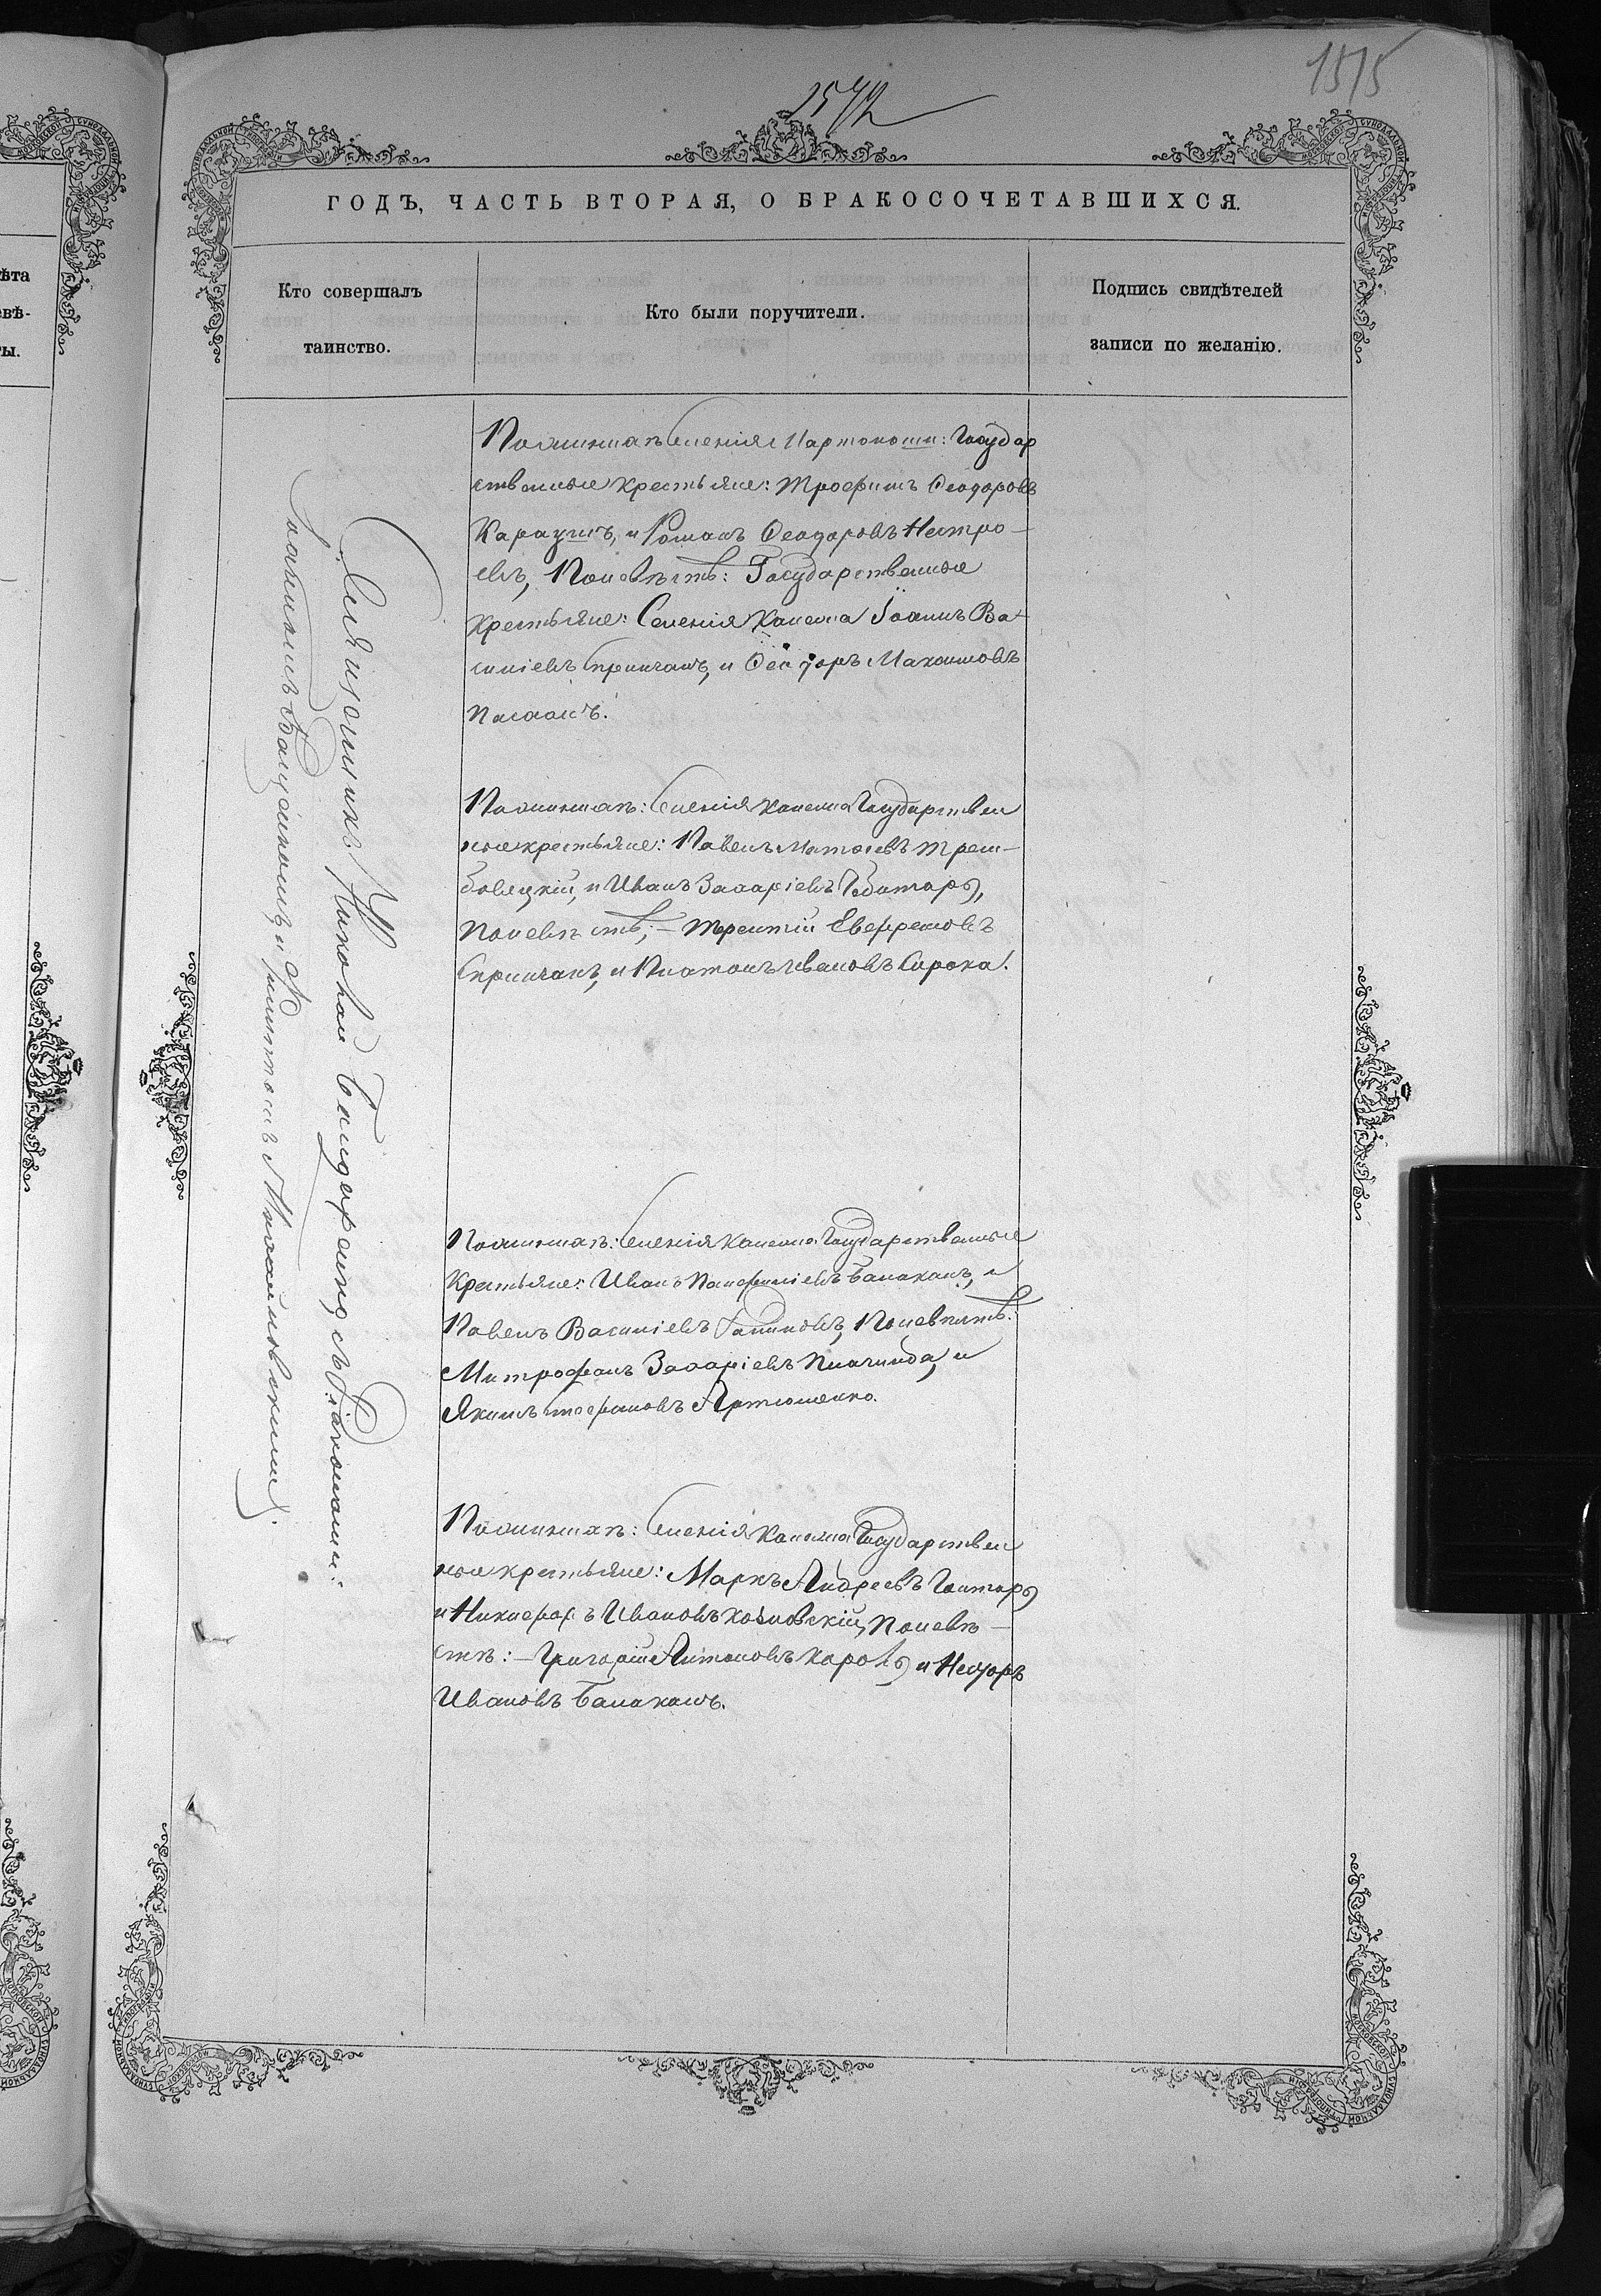 1515
1572
ГОДЪ, ЧАСТЬ ВТОРАЯ, О БРАКОСОЧЕТАВШИХСЯ.
Кто совершалъ
таинство.
Кто были поручители.
Подпись свидѣтелей
записи по желанію.
Священникъ Николай Бендаренко съ Діакономъ:
и Михайловскимъ.
По женихѣ Селенія Мартоноши: Государ
ственные крестьяне: Трофимъ Ѳеодоровъ
и Романъ Ѳеодоровъ Нестро-
евъ, По невѣстѣ: Государственные
Крестьяне: Селенія Канежа Іоаннъ Ва-
силіевъ Спринчанъ, и Ѳеодоръ Максимовъ
По женихѣ: Селенія Канежа Государствен
ные крестьяне: Павелъ Матѳіевъ Трем-
бовецкій, и Иванъ Захаріевъ
По невѣстѣ; – Терентій Евфремовъ
Спринчанъ, и Платонъ Ивановъ Сирота.
По женихѣ: Селенія Канежа Государственные
Крестьяне: Иванъ Памфиліевъ Балаканъ, и
Павелъ Василіевъ По невѣстѣ:
Митрофанъ Захаріевъ Плачинда, и
Якимъ Стефановъ Артюменко.
По женихѣ: Селенія Канежа Государствен
ные крестьяне: Маркъ Андреевъ
и Никифоръ Ивановъ Козловскій, По невѣ-
стѣ: – Григорій Антоновъ Король и Несторъ
Ивановъ Балаканъ.